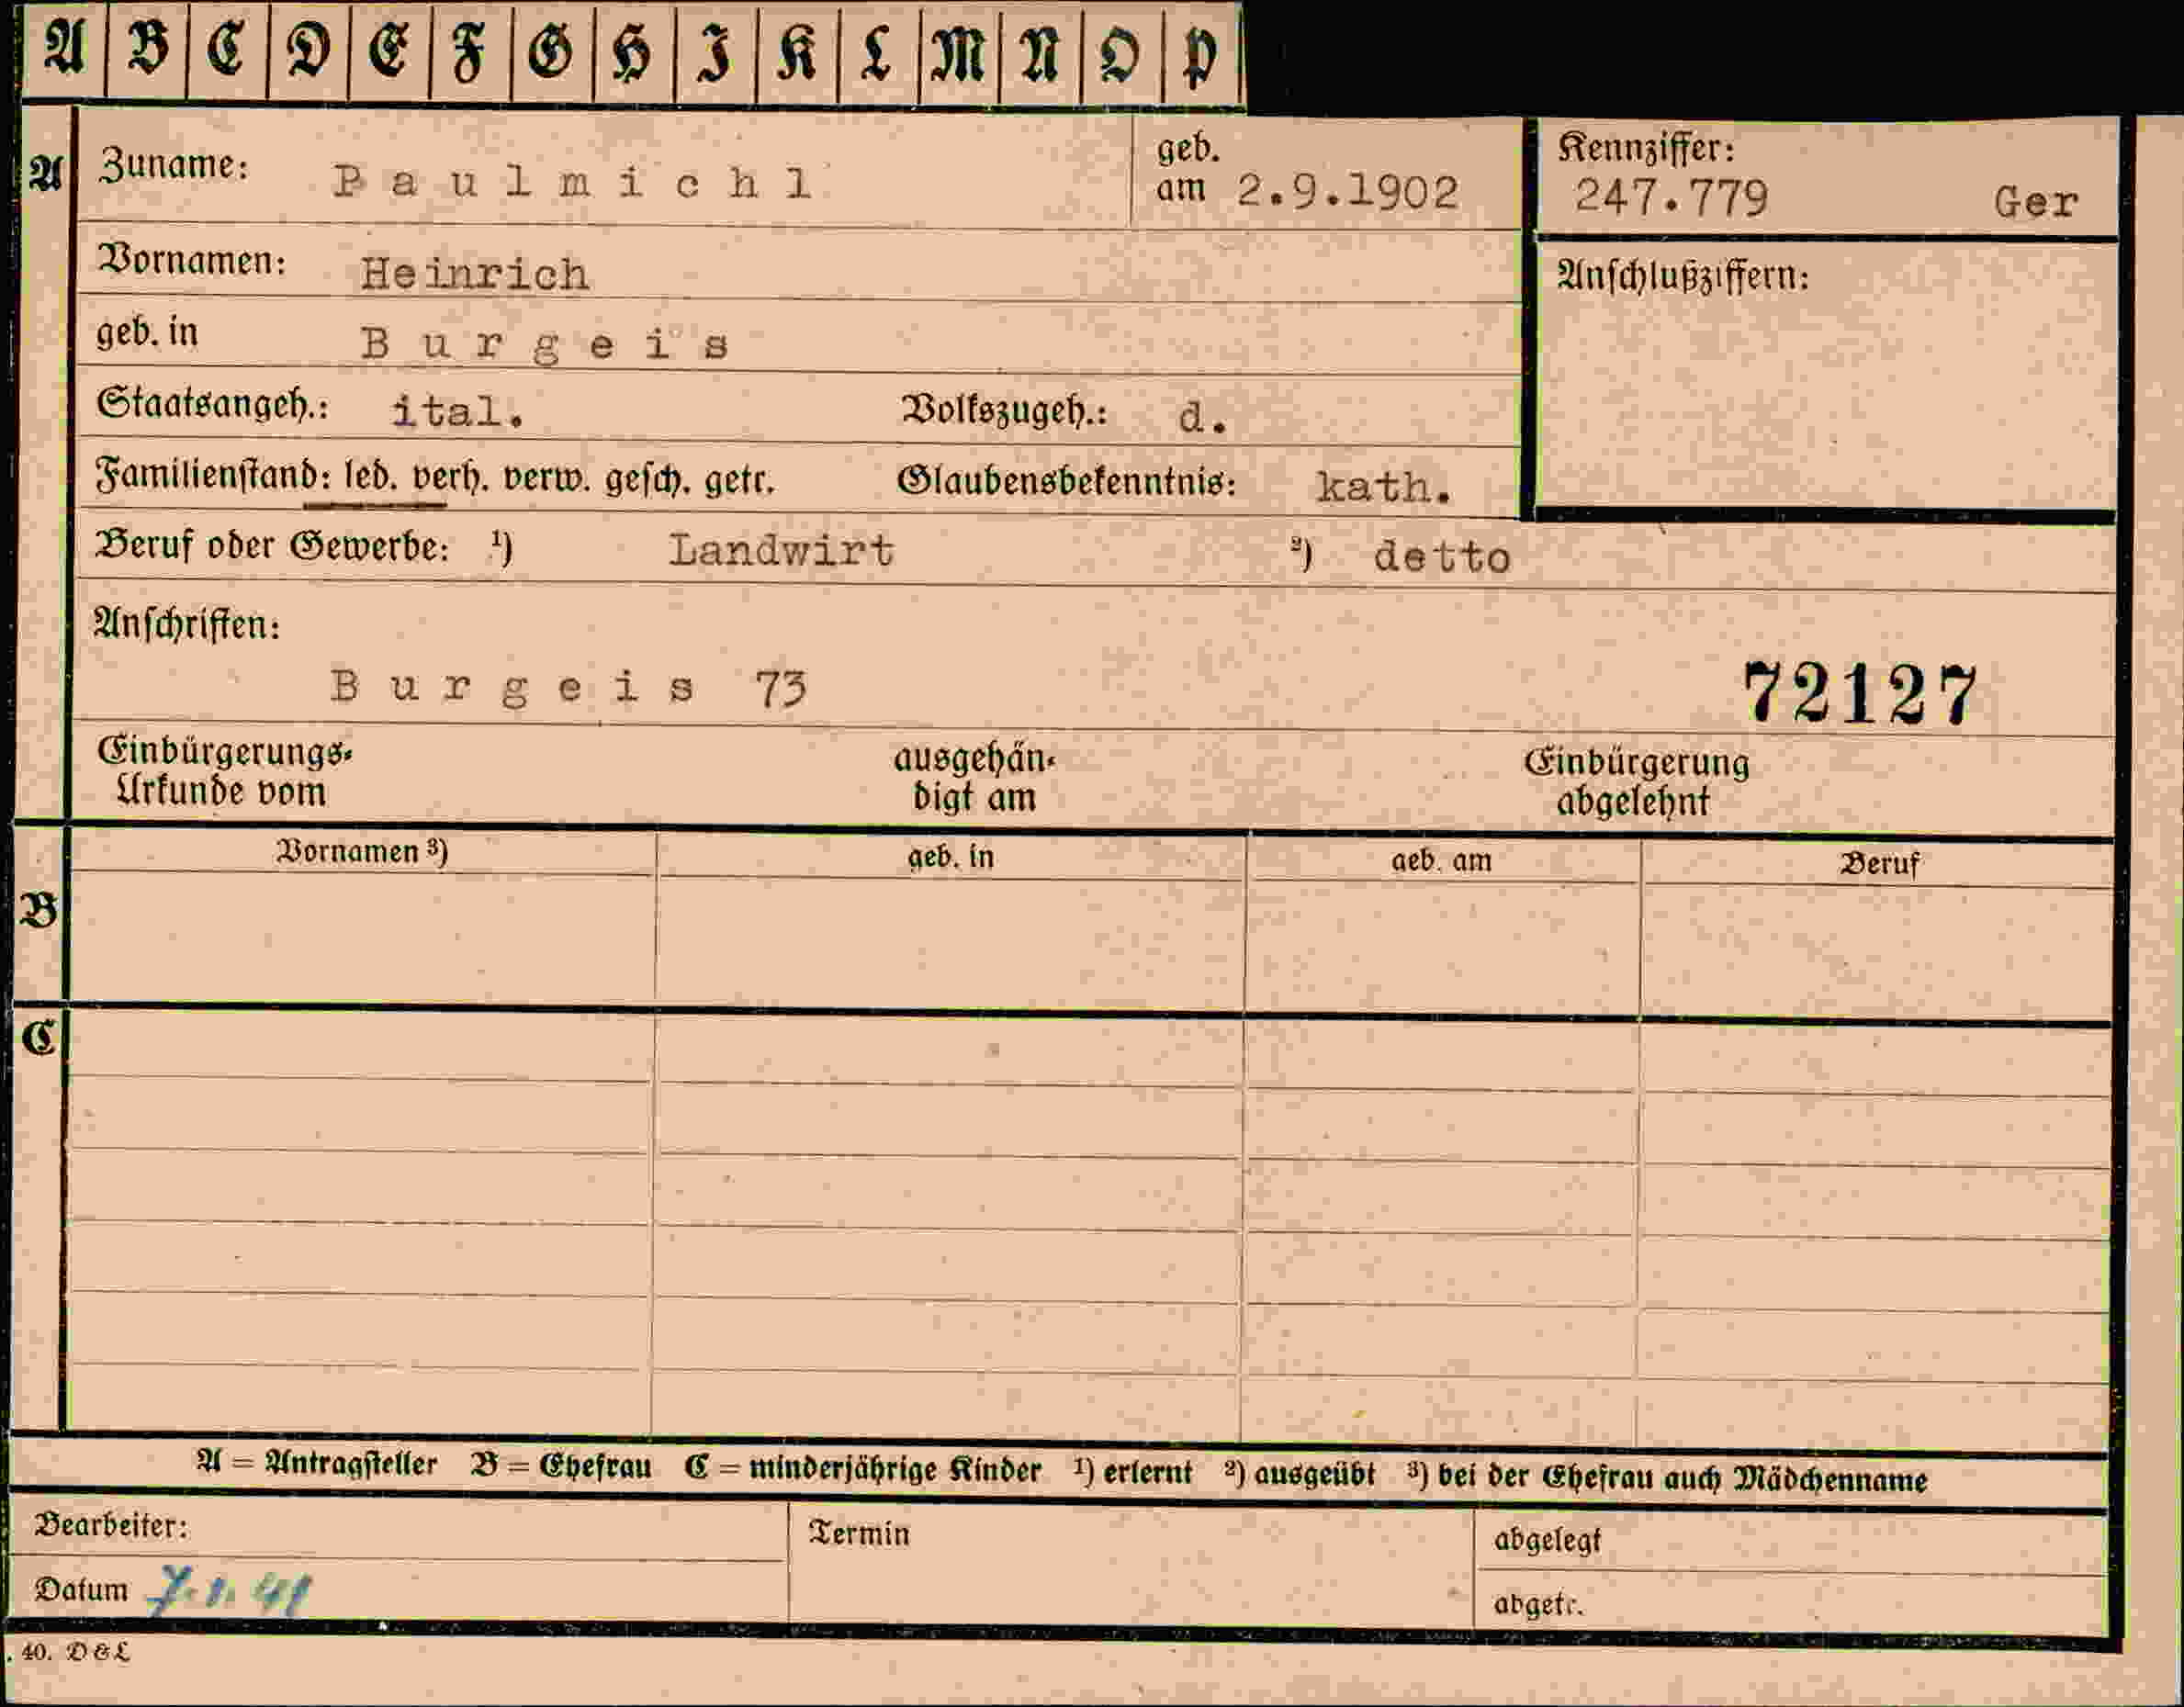 A B C D E F G H I K L M N O P
A Zuname: Paulmichl geb. am 2.9.1902 Kennziffer: 247.779 Ger
Vornamen: Heinrich Anschlußziffern:
geb. in Burgeis
Staatsangeh.: ital. Volkszugeh.: d.
Familienstand: led. verh. verw. gesch. getr. Glaubensbekenntnis: kath.
Beruf oder Gewerbe: ¹) Landwirt ²) detto
Anschriften:
Burgeis 73 72127
Einbürgerungs-Urkunde vom ausgehändigt am Einbürgerung abgelehnt
Vornamen ³) geb. in geb. am Beruf
B
C
A = Antragsteller B = Ehefrau C = minderjährige Kinder ¹) erlernt ²) ausgeübt ³) bei der Ehefrau auch Mädchenname
Bearbeiter: Termin abgelegt
Datum 7.1.41 abgetr.
. 40. D & L